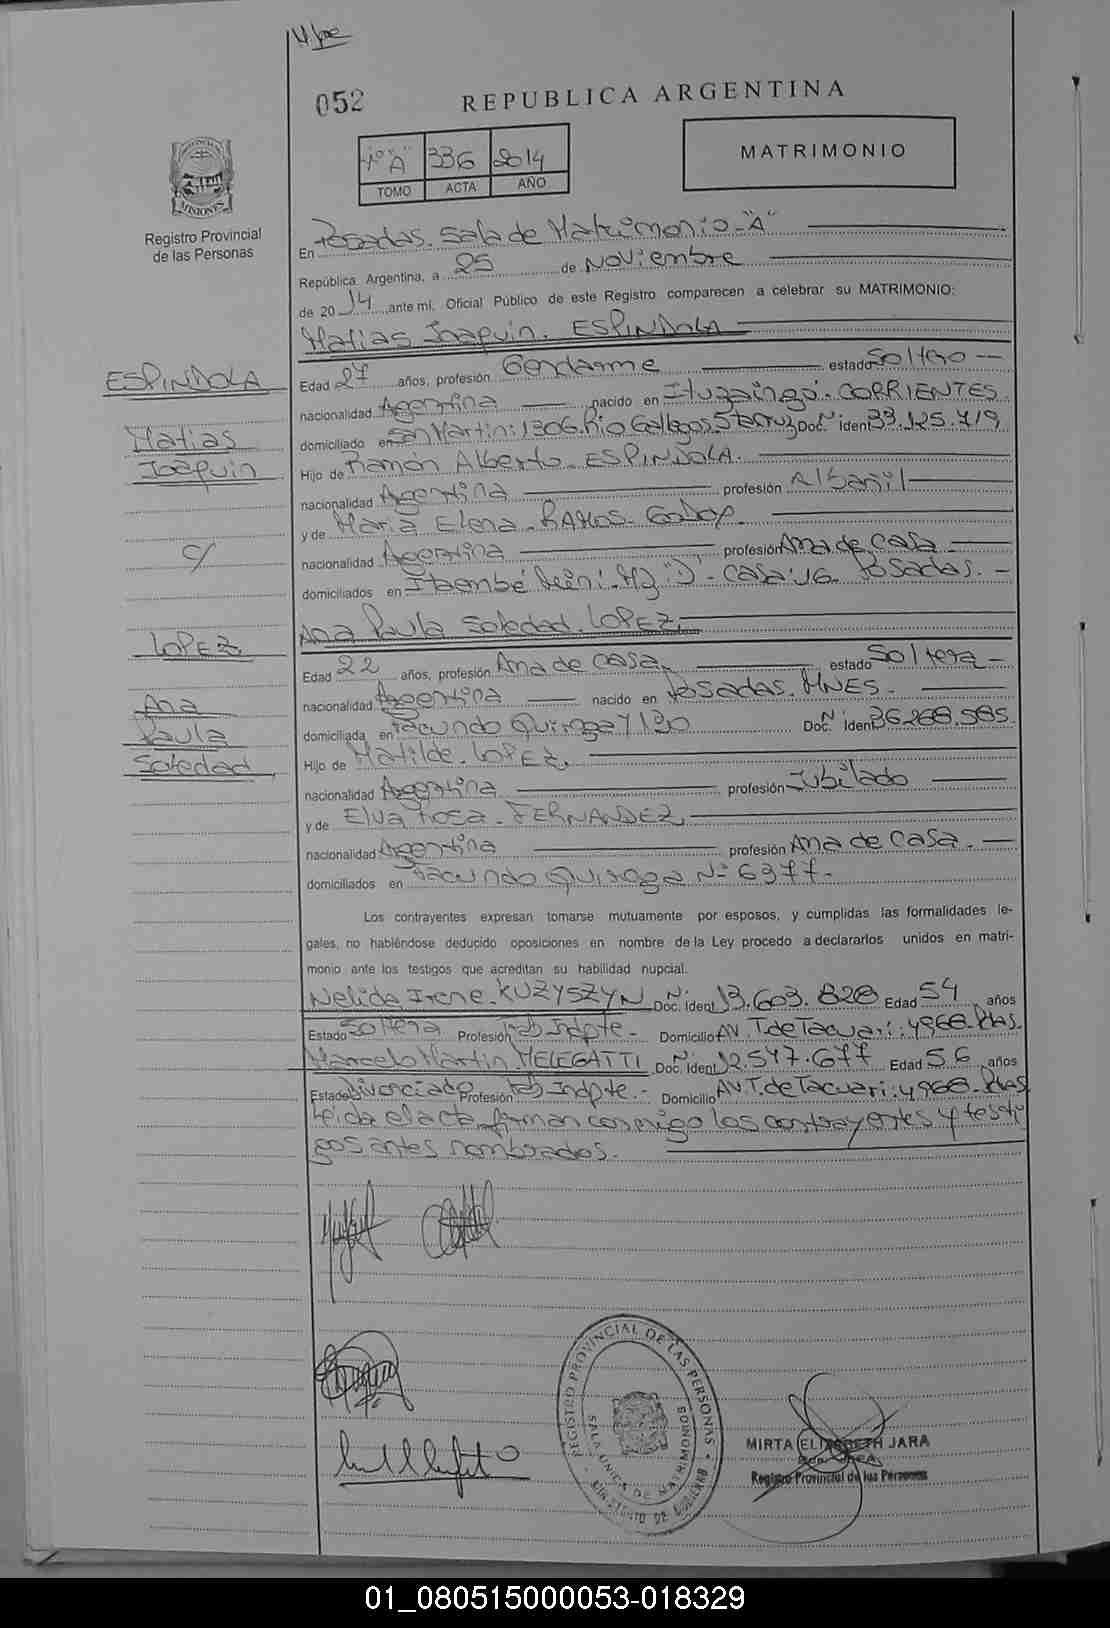 052
REPUBLICA ARGENTINA
1º "A" 336 2014
TOMO ACTA AÑO
MATRIMONIO
PROVINCIA DE MISIONES
Registro Provincial
de las Personas
En Posadas. Sala de Matrimonio "A"
República Argentina, a 25 de Noviembre
de 2014 ante mí, Oficial Público de este Registro comparecen a celebrar su MATRIMONIO:
Matias Joaquin. ESPINDOLA
ESPINDOLA
Matias
Joaquin
c/
LOPEZ
Ana
Paula
Soledad
Edad 27 años, profesión Gendarme estado Soltero
nacionalidad Argentina nacido en Ituzaingó. CORRIENTES
domiciliado en San Martin: 1306. Rio Gallegos. Sta Cruz Doc. Nº Ident 33.125.719
Hijo de Ramón Alberto ESPINDOLA.
nacionalidad Argentina profesión Albañil
y de Maria Elena. RAMOS. Godoy.
nacionalidad Argentina profesión Ama de casa
domiciliados en Itaembé Mini. Mz "D" Casa: 16 Posadas.
Ana Paula Soledad. LOPEZ.
Edad 22 años, profesión Ama de Casa. estado Soltera
nacionalidad Argentina nacido en Posadas. MNES.
domiciliada en Facundo Quiroga 7130 Doc. Nº Ident 36.268.585
Hijo de Matilde. LOPEZ.
nacionalidad Argentina profesión Jubilado
y de Elva Rosa. FERNANDEZ.
nacionalidad Argentina profesión Ama de Casa.
domiciliados en Facundo Quiroga Nº 6377.
Los contrayentes expresan tomarse mutuamente por esposos, y cumplidas las formalidades le-
gales, no habiéndose deducido oposiciones en nombre de la Ley procedo a declararlos unidos en matri-
monio ante los testigos que acreditan su habilidad nupcial.
Nelida Irene. KUZYSZYN Doc. Ident 13.603.828 Edad 54 años
Estado Soltera Profesión Trab Indpte. Domicilio AV. T. de Tacuari: 4968. Pdas.
Marcelo Martin MELEGATTI Doc. Nº Ident 12.547.677 Edad 56 años
Estado Divorciado Profesión Trab Indpte. Domicilio AV. T. de Tacuari: 4968. Pdas
Leida el acta firman conmigo los contrayentes y testi
gos antes nombrados.
REGISTRO PROVINCIAL DE LAS PERSONAS
SALA UNICA DE MATRIMONIOS
MINISTERIO DE GOBIERNO
MIRTA ELIZABETH JARA
Registro Provincial de las Personas
01_080515000053-018329